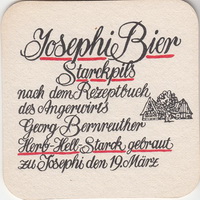 Josephi Bier
Starckpils
nach dem Rezeptbuch
des Angerwirts
Georg Bernreuther
Herb-Hell-Starck gebraut
zu Josephi den 19. März